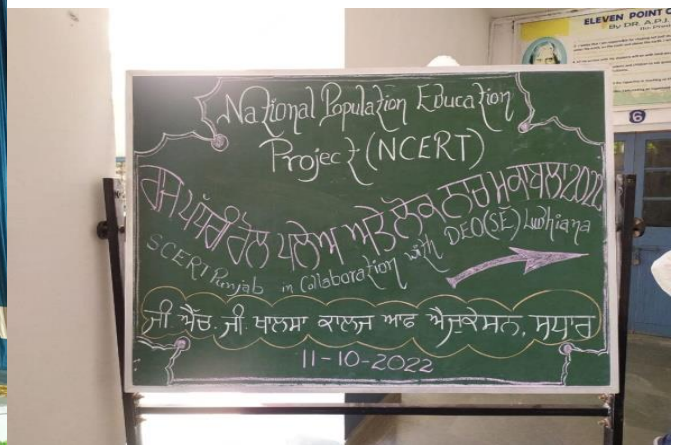 ELEVEN POINT
By DR. A.P.J.
6
National Population Education
Project (NCERT)
ਰਾਜ ਪੱਧਰੀ ਰੋਲ ਪਲੇਅ ਅਤੇ ਲੋਕ ਨਾਚ ਮੁਕਾਬਲਾ 2022
SCERT Punjab in Collaboration with DEO(SE) Ludhiana
ਜੀ. ਐੱਚ. ਜੀ. ਖਾਲਸਾ ਕਾਲਜ ਆਫ ਐਜੂਕੇਸਨ, ਸੁਧਾਰ
11-10-2022